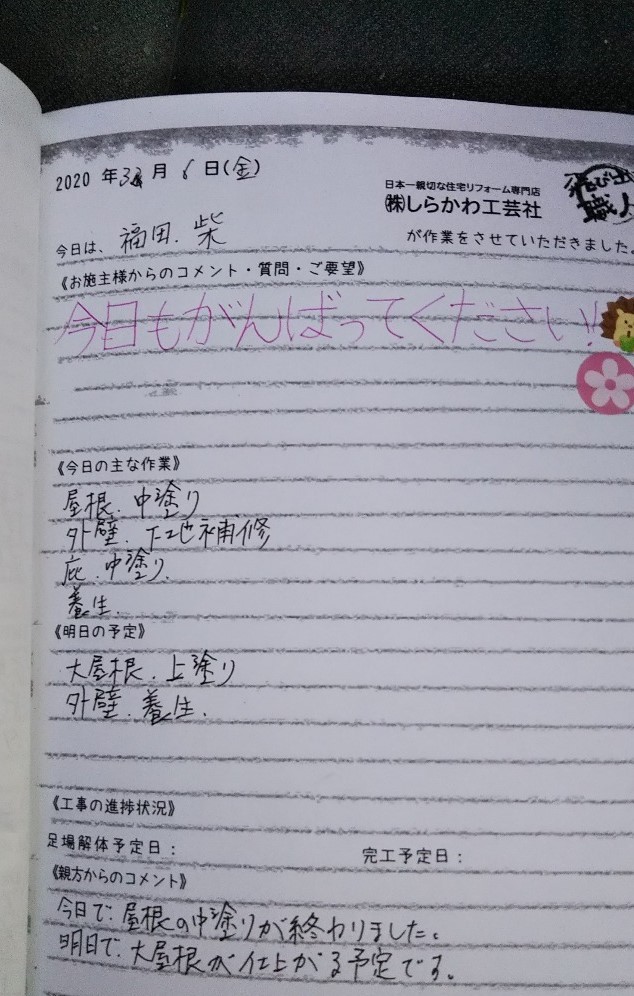 2020 年 3 月 6 日(金)
日本一親切な住宅リフォーム専門店
㈱しらかわ工芸社
職人
今日は、 福田.柴 が作業をさせていただきました。
《お施主様からのコメント・質問・ご要望》
今日もがんばってください!!
《今日の主な作業》
屋根.中塗り
外壁.下地補修
庇.中塗り.
養生.
《明日の予定》
大屋根.上塗り
外壁.養生.
《工事の進捗状況》
足場解体予定日: 完工予定日:
《親方からのコメント》
今日で.屋根の中塗りが終わりました。
明日で.大屋根が仕上がる予定です。